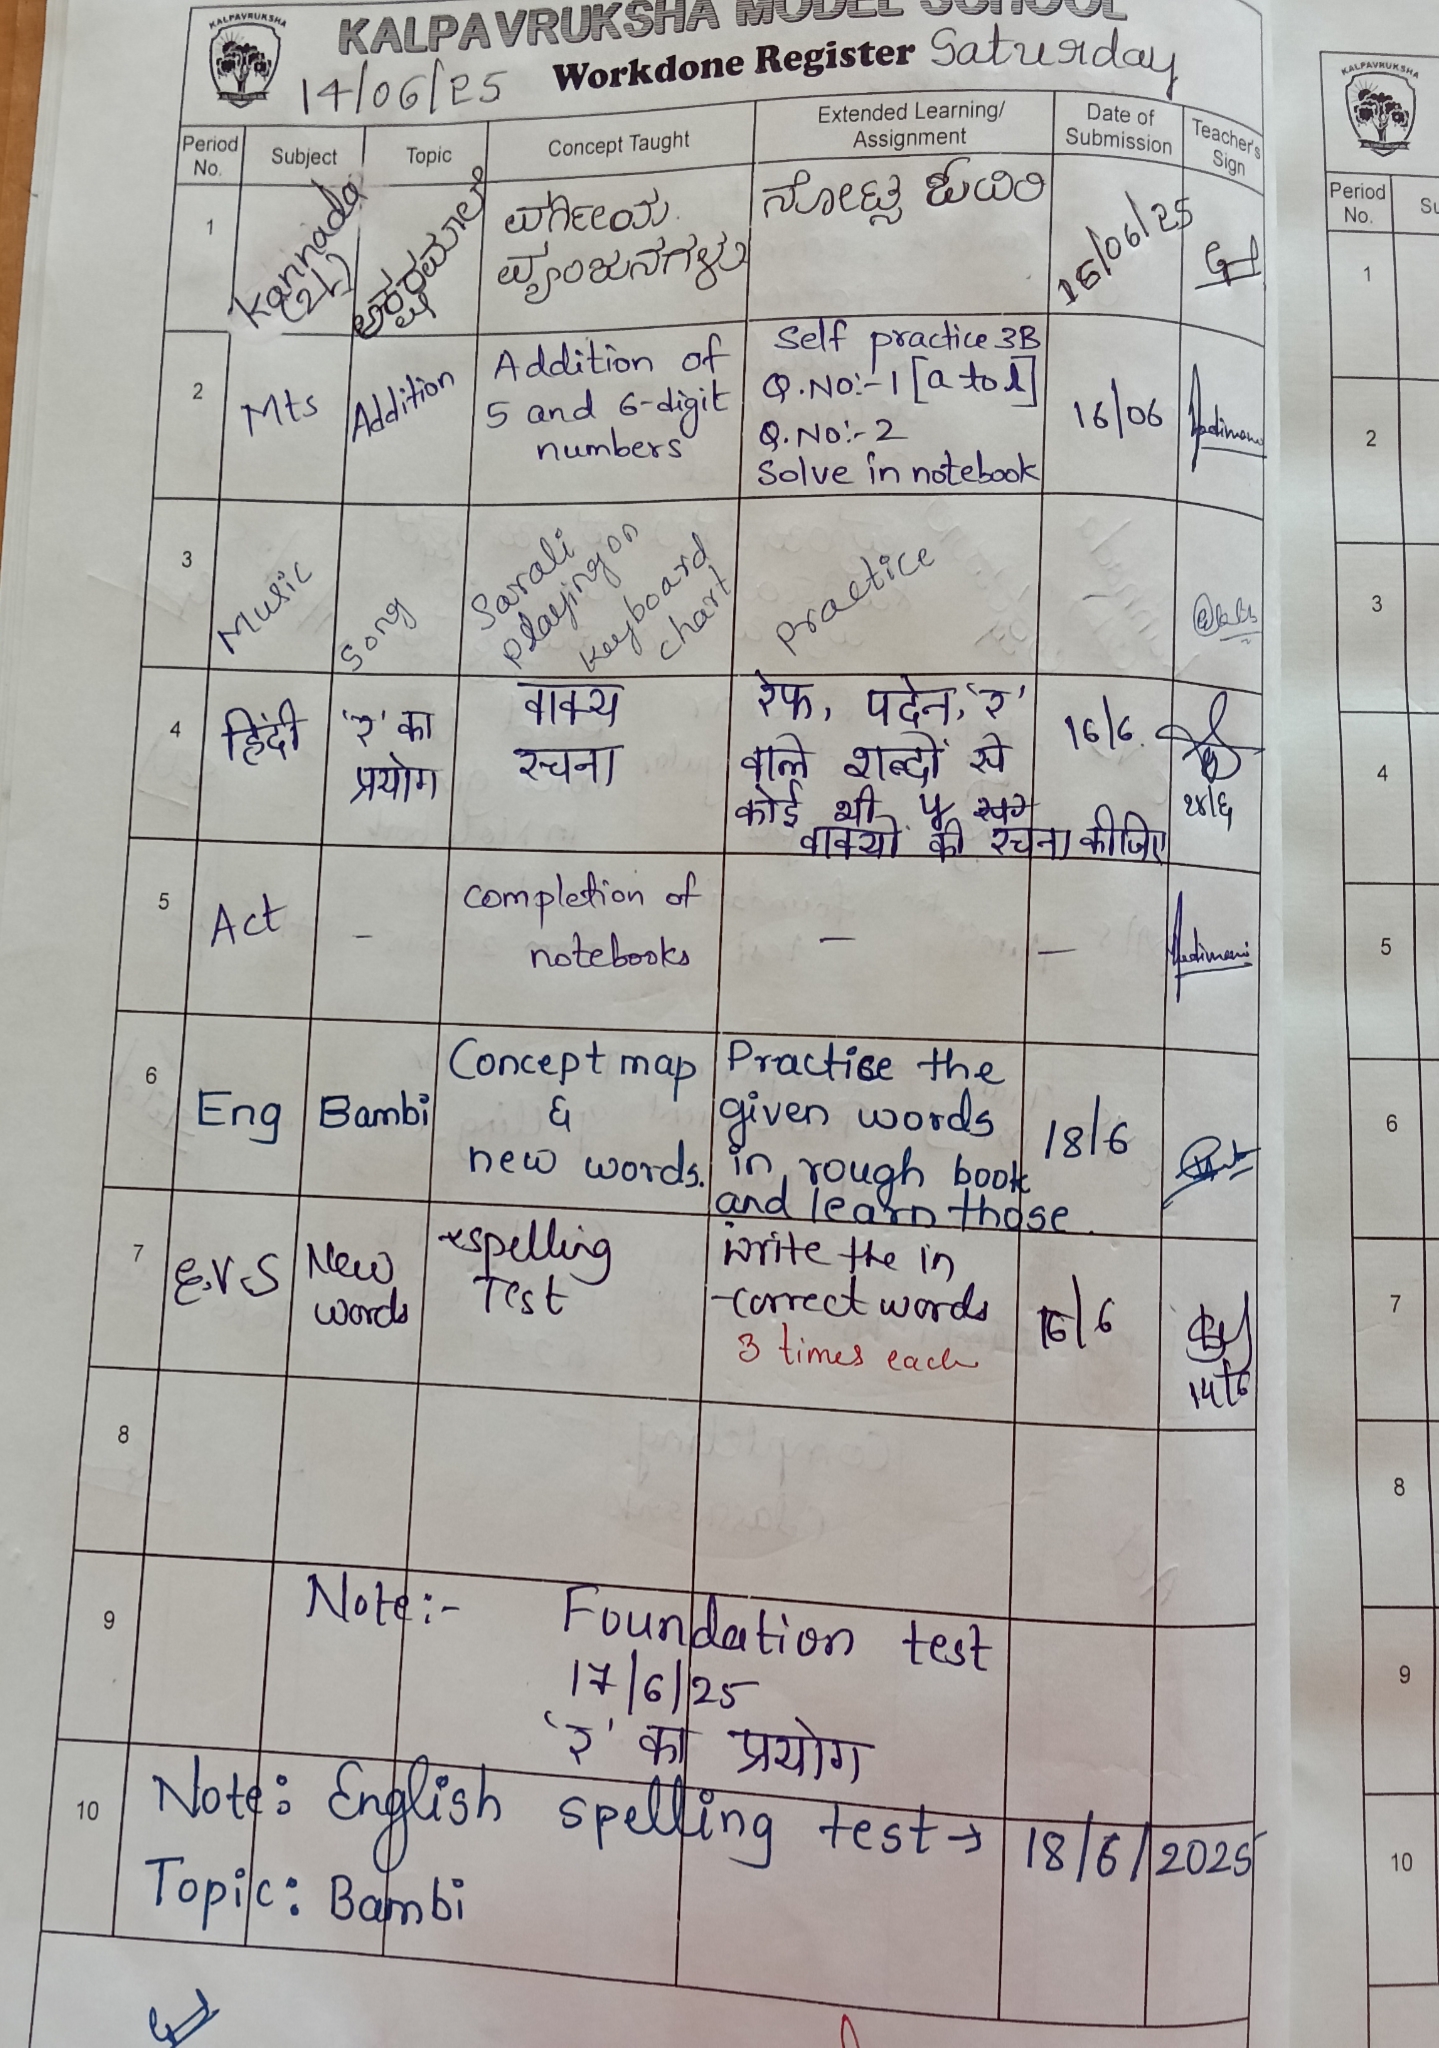 KALPAVRUKSHA
KALPAVRUKSHA MODEL SCHOOL
Workdone Register Saturday
14/06/25
Period No. Subject Topic Concept Taught Extended Learning/ Assignment Date of Submission Teacher's Sign
1 Kannada (2L) ಅಕ್ಷರಮಾಲೆ ವರ್ಗೀಯ ನೋಟ್ಸ್ 16/06/25
ವ್ಯಂಜನಗಳು
2 Mts Addition Addition of Self practice 3B 16/06
5 and 6-digit Q.No:-1 [a to l]
numbers Q.No:-2
Solve in notebook
3 Music Song Sarali practice -
playing on
keyboard
chart
4 हिंदी 'र' का वाक्य रेफ, पदेन, 'र' 16/6.
प्रयोग रचना वाले शब्दों से
कोई भी ५
वाक्यों की रचना कीजिए
१४/६
5 Act - completion of - -
notebooks
6 Eng Bambi Concept map Practise the 18/6
& given words
new words. in rough book
and learn those.
7 E.V.S New spelling write the in 16/6
words Test -correct words
3 times each
14/6
8
9 Note:- Foundation test
17/6/25
'र' का प्रयोग
10 Note: English spelling test → 18/6/2025
Topic: Bambi
KALPAVRUKSHA
Period No.
1
2
3
4
5
6
7
8
9
10